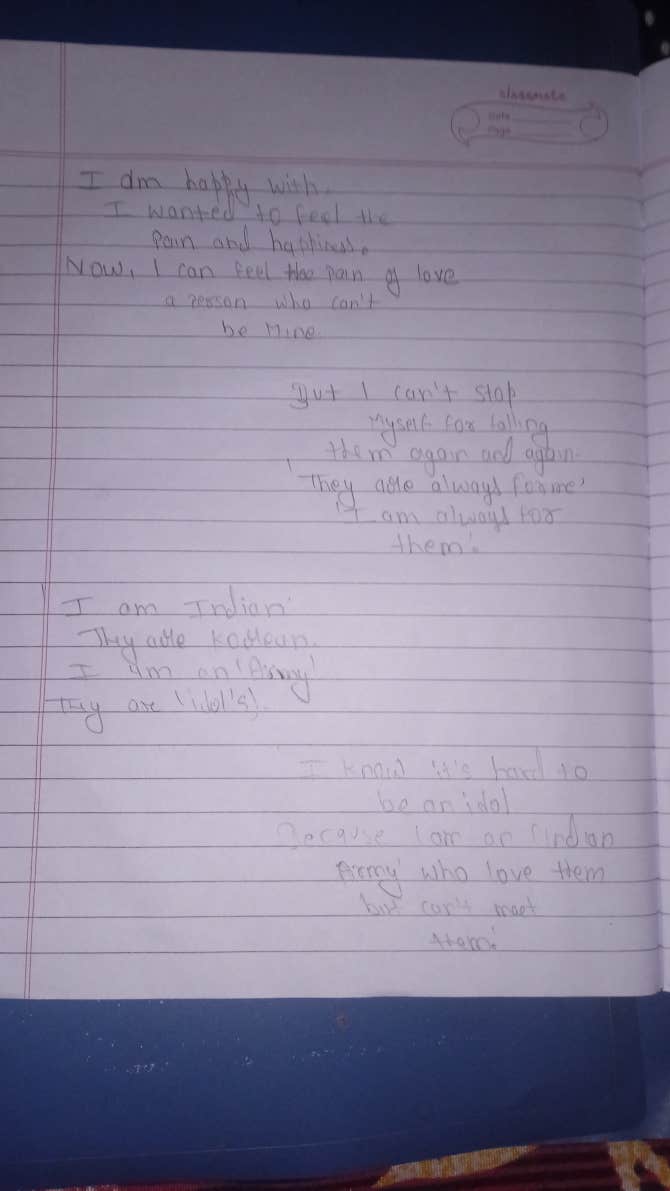 classmate
Date
Page
I am happy with.
I wanted to feel the
pain and happiness.
Now, I can feel the pain of love
a person who can't
be Mine.
But I can't stop
Myself for falling
them again and again.
'They are always for me'
'I am always for
them'.
I am Indian'
They are Korean.
I am an 'Army'
They are 'idol's'.
I know it's hard to
be an idol
Because I am an 'Indian
Army' who love them
but can't meet
them.'